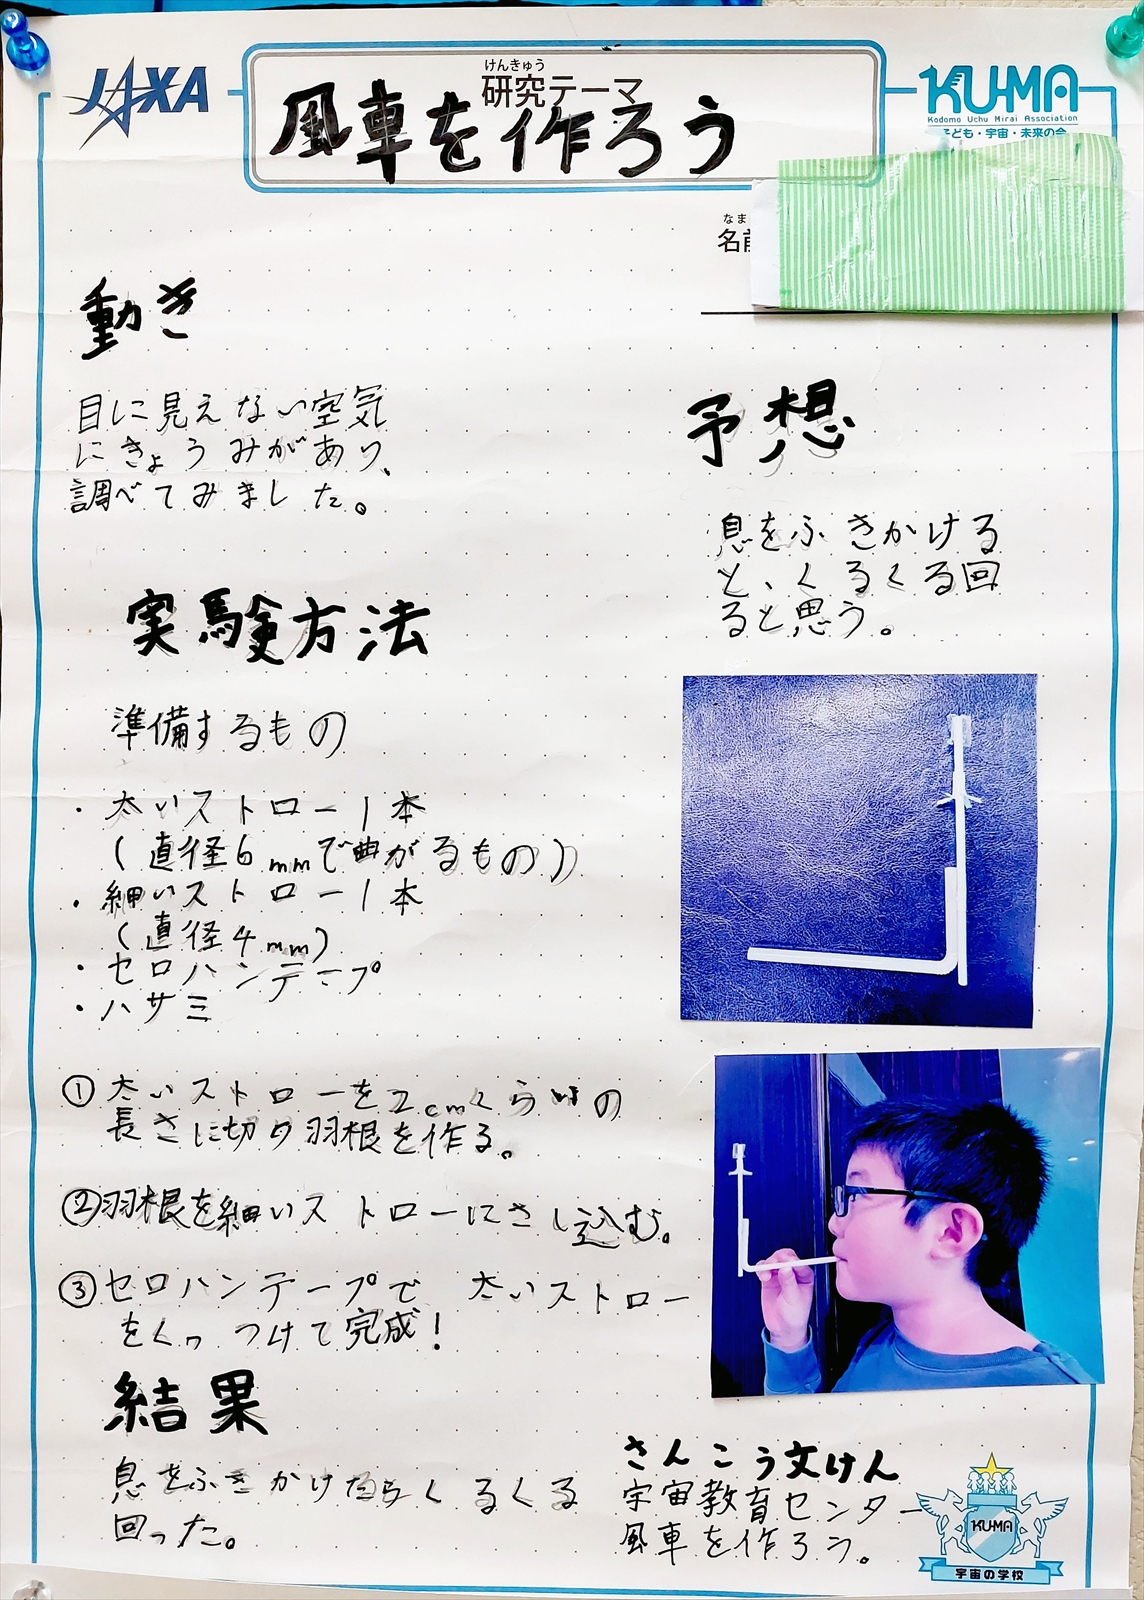 JAXA
けんきゅう
研究テーマ
風車を作ろう
KU-MA
Kodomo Uchu Mirai Association
子ども・宇宙・未来の会
なま
名前
動き
目に見えない空気
にきょうみがあり、
調べてみました。
予想
息をふきかける
と、くるくる回
ると思う。
実験方法
準備するもの
・太いストロー1本
(直径6mmで曲がるもの)
・細いストロー1本
(直径4mm)
・セロハンテープ
・ハサミ
①太いストローを2cmくらいの
長さに切り羽根を作る。
②羽根を細いストローにさし込む。
③セロハンテープで 太いストロー
をくっつけて完成!
結果
息をふきかけたらくるくる
回った。
さんこう文けん
宇宙教育センター
風車を作ろう。
KU-MA
宇宙の学校